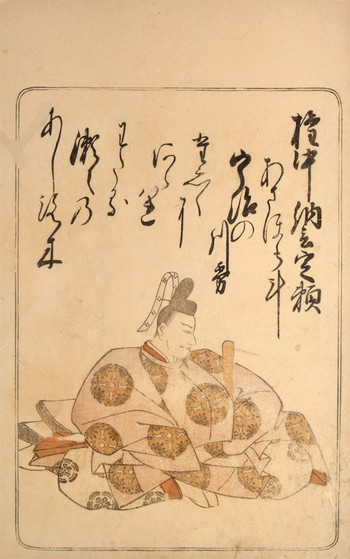 権中納言定頼
あさほらけ
宇治の
川霧
たえ〳〵に
あらはれ
わたる
瀬々の
あしろ木